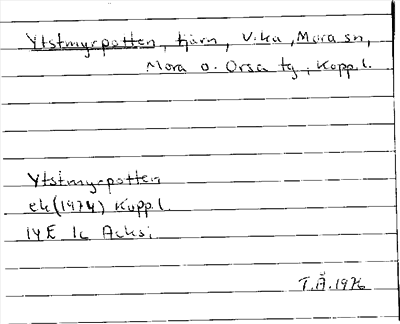 Ytstmyrpotten, tjärn, Vika, Mora sn,
Mora o. Orsa tg, Kopp.l.
Ytstmyrpotten
ek(1974) Kopp.l.
14E 1c Acksi
T.Å.1976